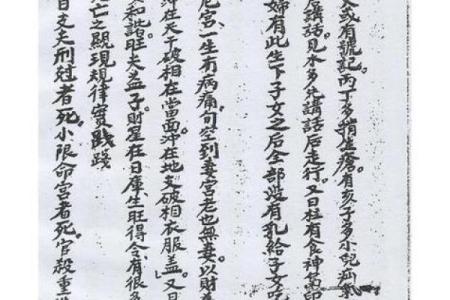 或有號記。丙丁多稍生瘡。有亥子多小兒疝氣
講話。見水多先講話后走行。又日柱有食神傷
婦有此生下子女之后全部沒有乳給子女
尼宮。一生有病痛。旬空到妻宮老也無妻。以財
沖在天干破相在當面。沖在地支破相衣服盖。又日
和諧旺夫益子。財星在日庫。生旺得令有很多
亡之顯現規律實踐
日支夫刑尅者死。小限命宮者死。官殺重